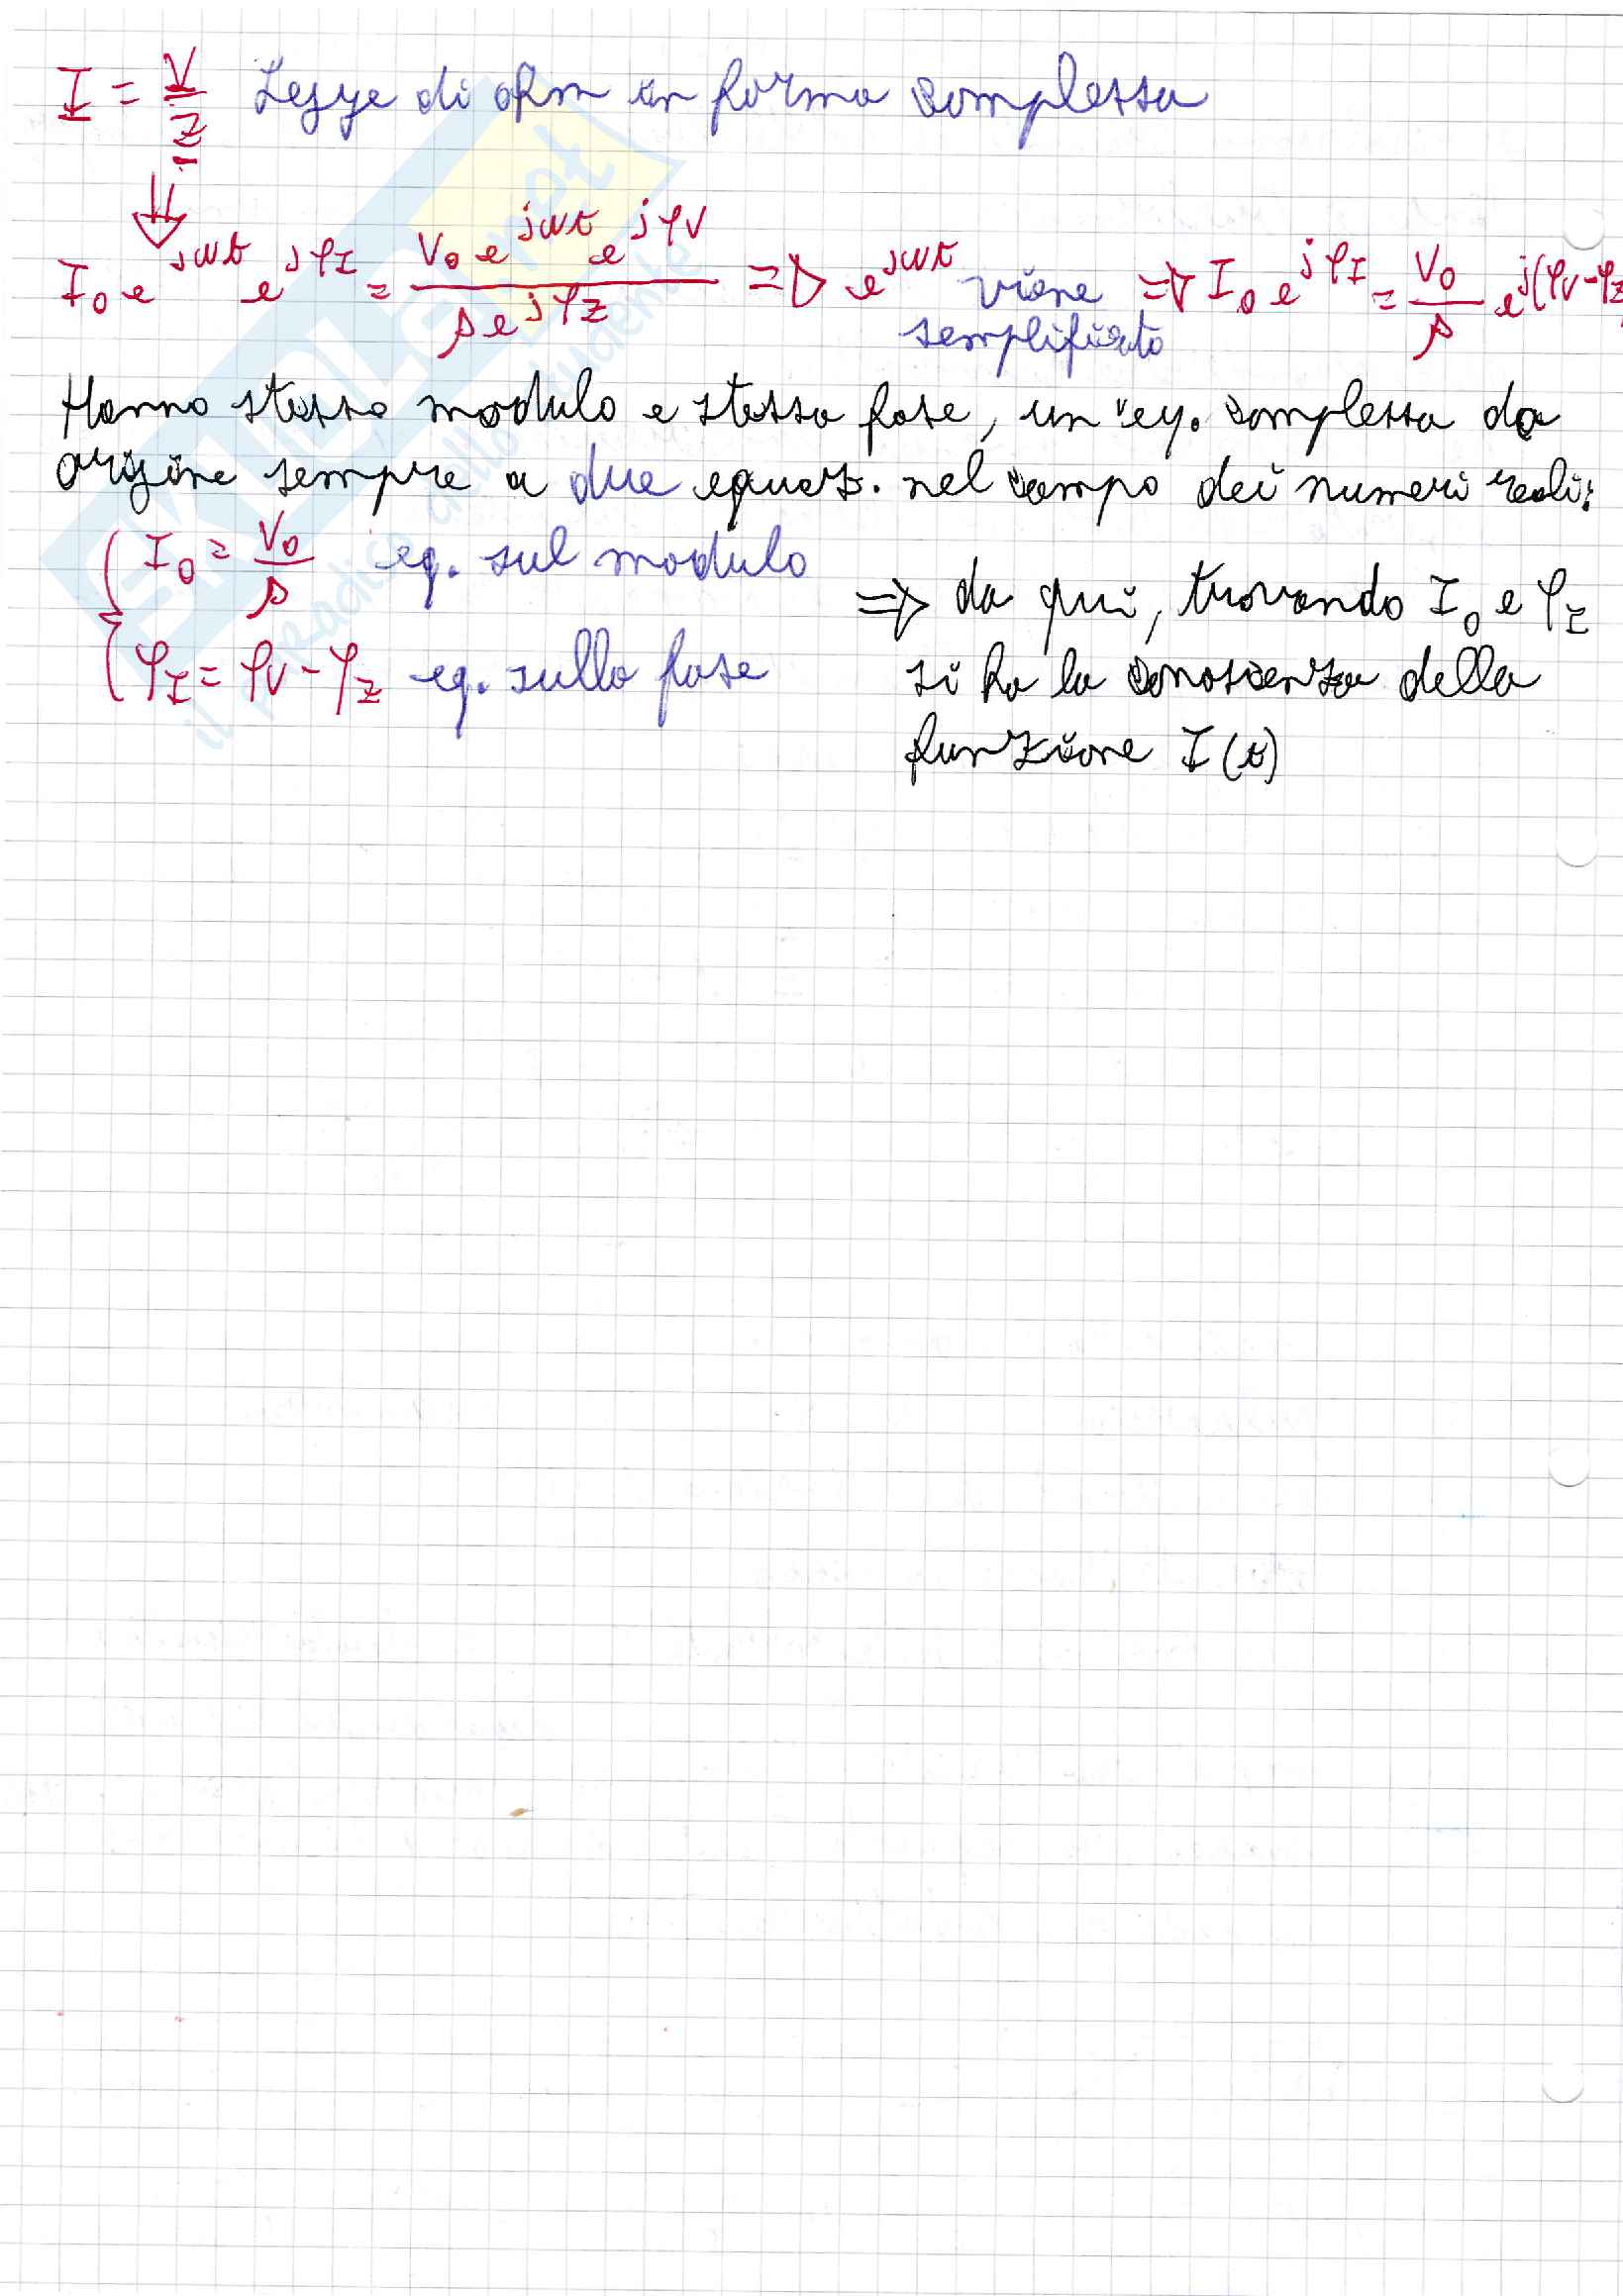 I = V/Z Legge di ohm in forma complessa
⇓
I₀ e^jωt e^jφI = V₀ e^jωt e^jφV / ρ e^jφZ ⇒ e^jωt viene semplificato ⇒ I₀ e^jφI = V₀/ρ e^j(φV-φZ
Hanno stesso modulo e stessa fase, un'eq. complessa da
origine sempre a due equaz. nel campo dei numeri reali:
{ I₀ = V₀/ρ eq. sul modulo
φI = φV - φZ eq. sulla fase
⇒ da qui, trovando I₀ e φI
si ha la conoscenza della
funzione I(t)
SKUOLA.net
il paradiso dello studente